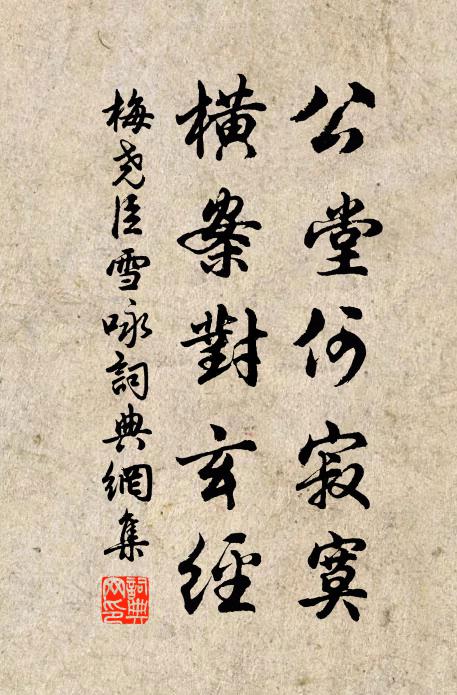 公堂何寂寞
橫案對玄經
梅堯臣雪咏詞典網集
詞典網印